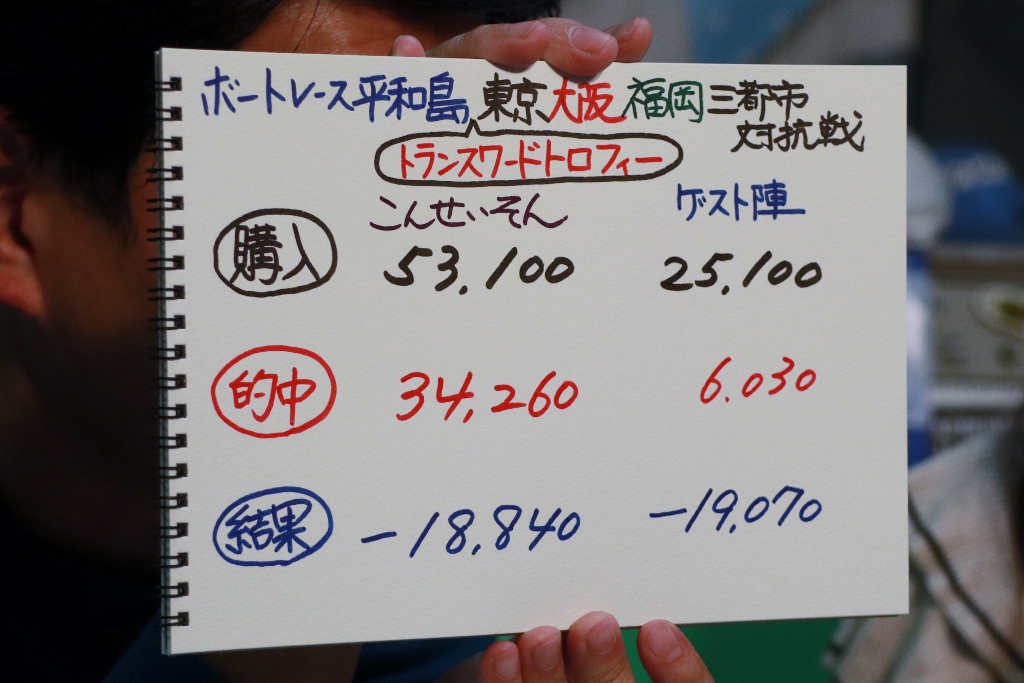 ボートレース平和島 東京大阪福岡三都市
対抗戦
トランスワードトロフィー
こんせいそん ゲスト陣
購入 53,100 25,100
的中 34,260 6.030
結果 -18,840 -19,070